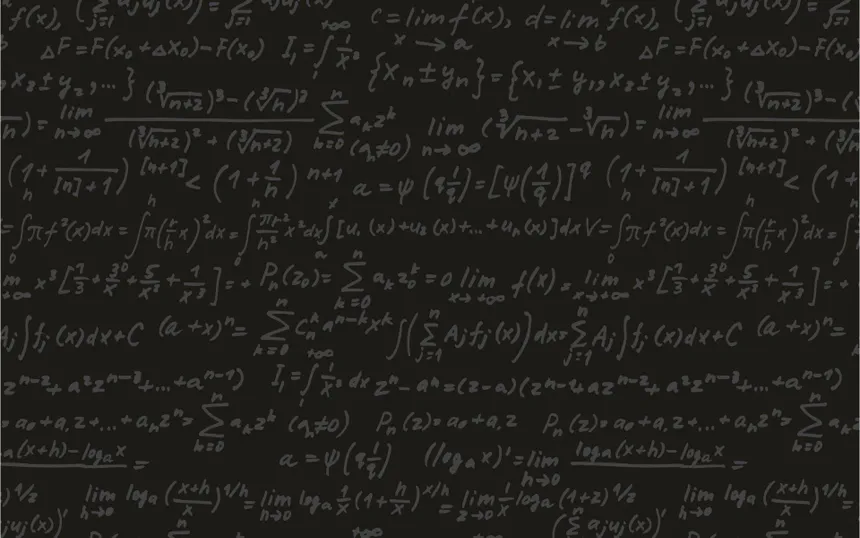 f(x), (Σ ajuj(x))' j=1 c = lim f(x), d = lim f(x), (Σ j=1
x → a x → b
ΔF = F(x₀ + Δx₀) – F(x₀) I₁ = ∫ 1/x² +∞ 1 ΔF = F(x₀ + Δx₀) – F(x₀)
x₂ ± y₂, ... } {xn ± yn} = {x₁ ± y₁, x₂ ± y₂, ... }
n) = lim n→∞ ((∛n+2)³ – (∛n)³)/((∛n+2)² + (∛n+2)) Σ n k=0 aₖzᵏ (aₙ≠0) lim n→∞ (∛n+2 – ∛n) = lim n→∞ (∛n+2)³ – (
(1 + 1/([n]+1))^[n+1] < (1 + 1/n)^n+1 a = ψ(q 1/q) = [ψ(1/q)]^q (1 + 1/([n]+1))^[n+1] < (1 +
= ∫πf²(x)dx = ∫π(r/h x)²dx = ∫ πr²/h² x²dx ∫[u₁(x) + u₂(x) + ... + uₙ(x)]dx V = ∫πf²(x)dx = ∫π(r/h x)²dx = ∫
m x→+∞ x³[1/3 + 30/x + 5/x² + 1/x³] = + Pₙ(z₀) = Σ n k=0 aₖz₀ᵏ = 0 lim x→+∞ f(x) = lim x→+∞ x³[1/3 + 30/x + 5/x² + 1/x³] = +
Aj∫fj(x)dx + C (a + x)ⁿ = Σ n k=0 Cₙᵏ aⁿ⁻ᵏxᵏ ∫(Σ n j=1 Ajfj(x))dx = Σ n j=1 Aj∫fj(x)dx + C (a + x)ⁿ =
zⁿ⁻² + a²zⁿ⁻³ + ... + aⁿ⁻¹) I₁ = ∫ +∞ 1 1/x² dx zⁿ – aⁿ = (z – a)(zⁿ⁻¹ + azⁿ⁻² + a²zⁿ⁻³ + ... + aⁿ⁻¹)
= a₀ + a₁z + ... + aₙzⁿ = Σ n k=0 aₖzᵏ (aₙ≠0) Pₙ(z) = a₀ + a₁z Pₙ(z) = a₀ + a₁z + ... + aₙzⁿ = Σ n k=0
a(x+h) – logₐx = a = ψ(q 1/q) (logₐx)' = lim h→0 logₐ(x+h) – logₐx =
)^1/2 lim h→0 logₐ((x+h)/x)^1/h = lim h→0 logₐ 1/x (1 + h/x)^x/h = lim z→0 1/x logₐ(1+z)^1/2 lim h→0 logₐ((x+h)/x)^1/h =
juj(x))' n +∞ (Σ n ajuj(x))' n